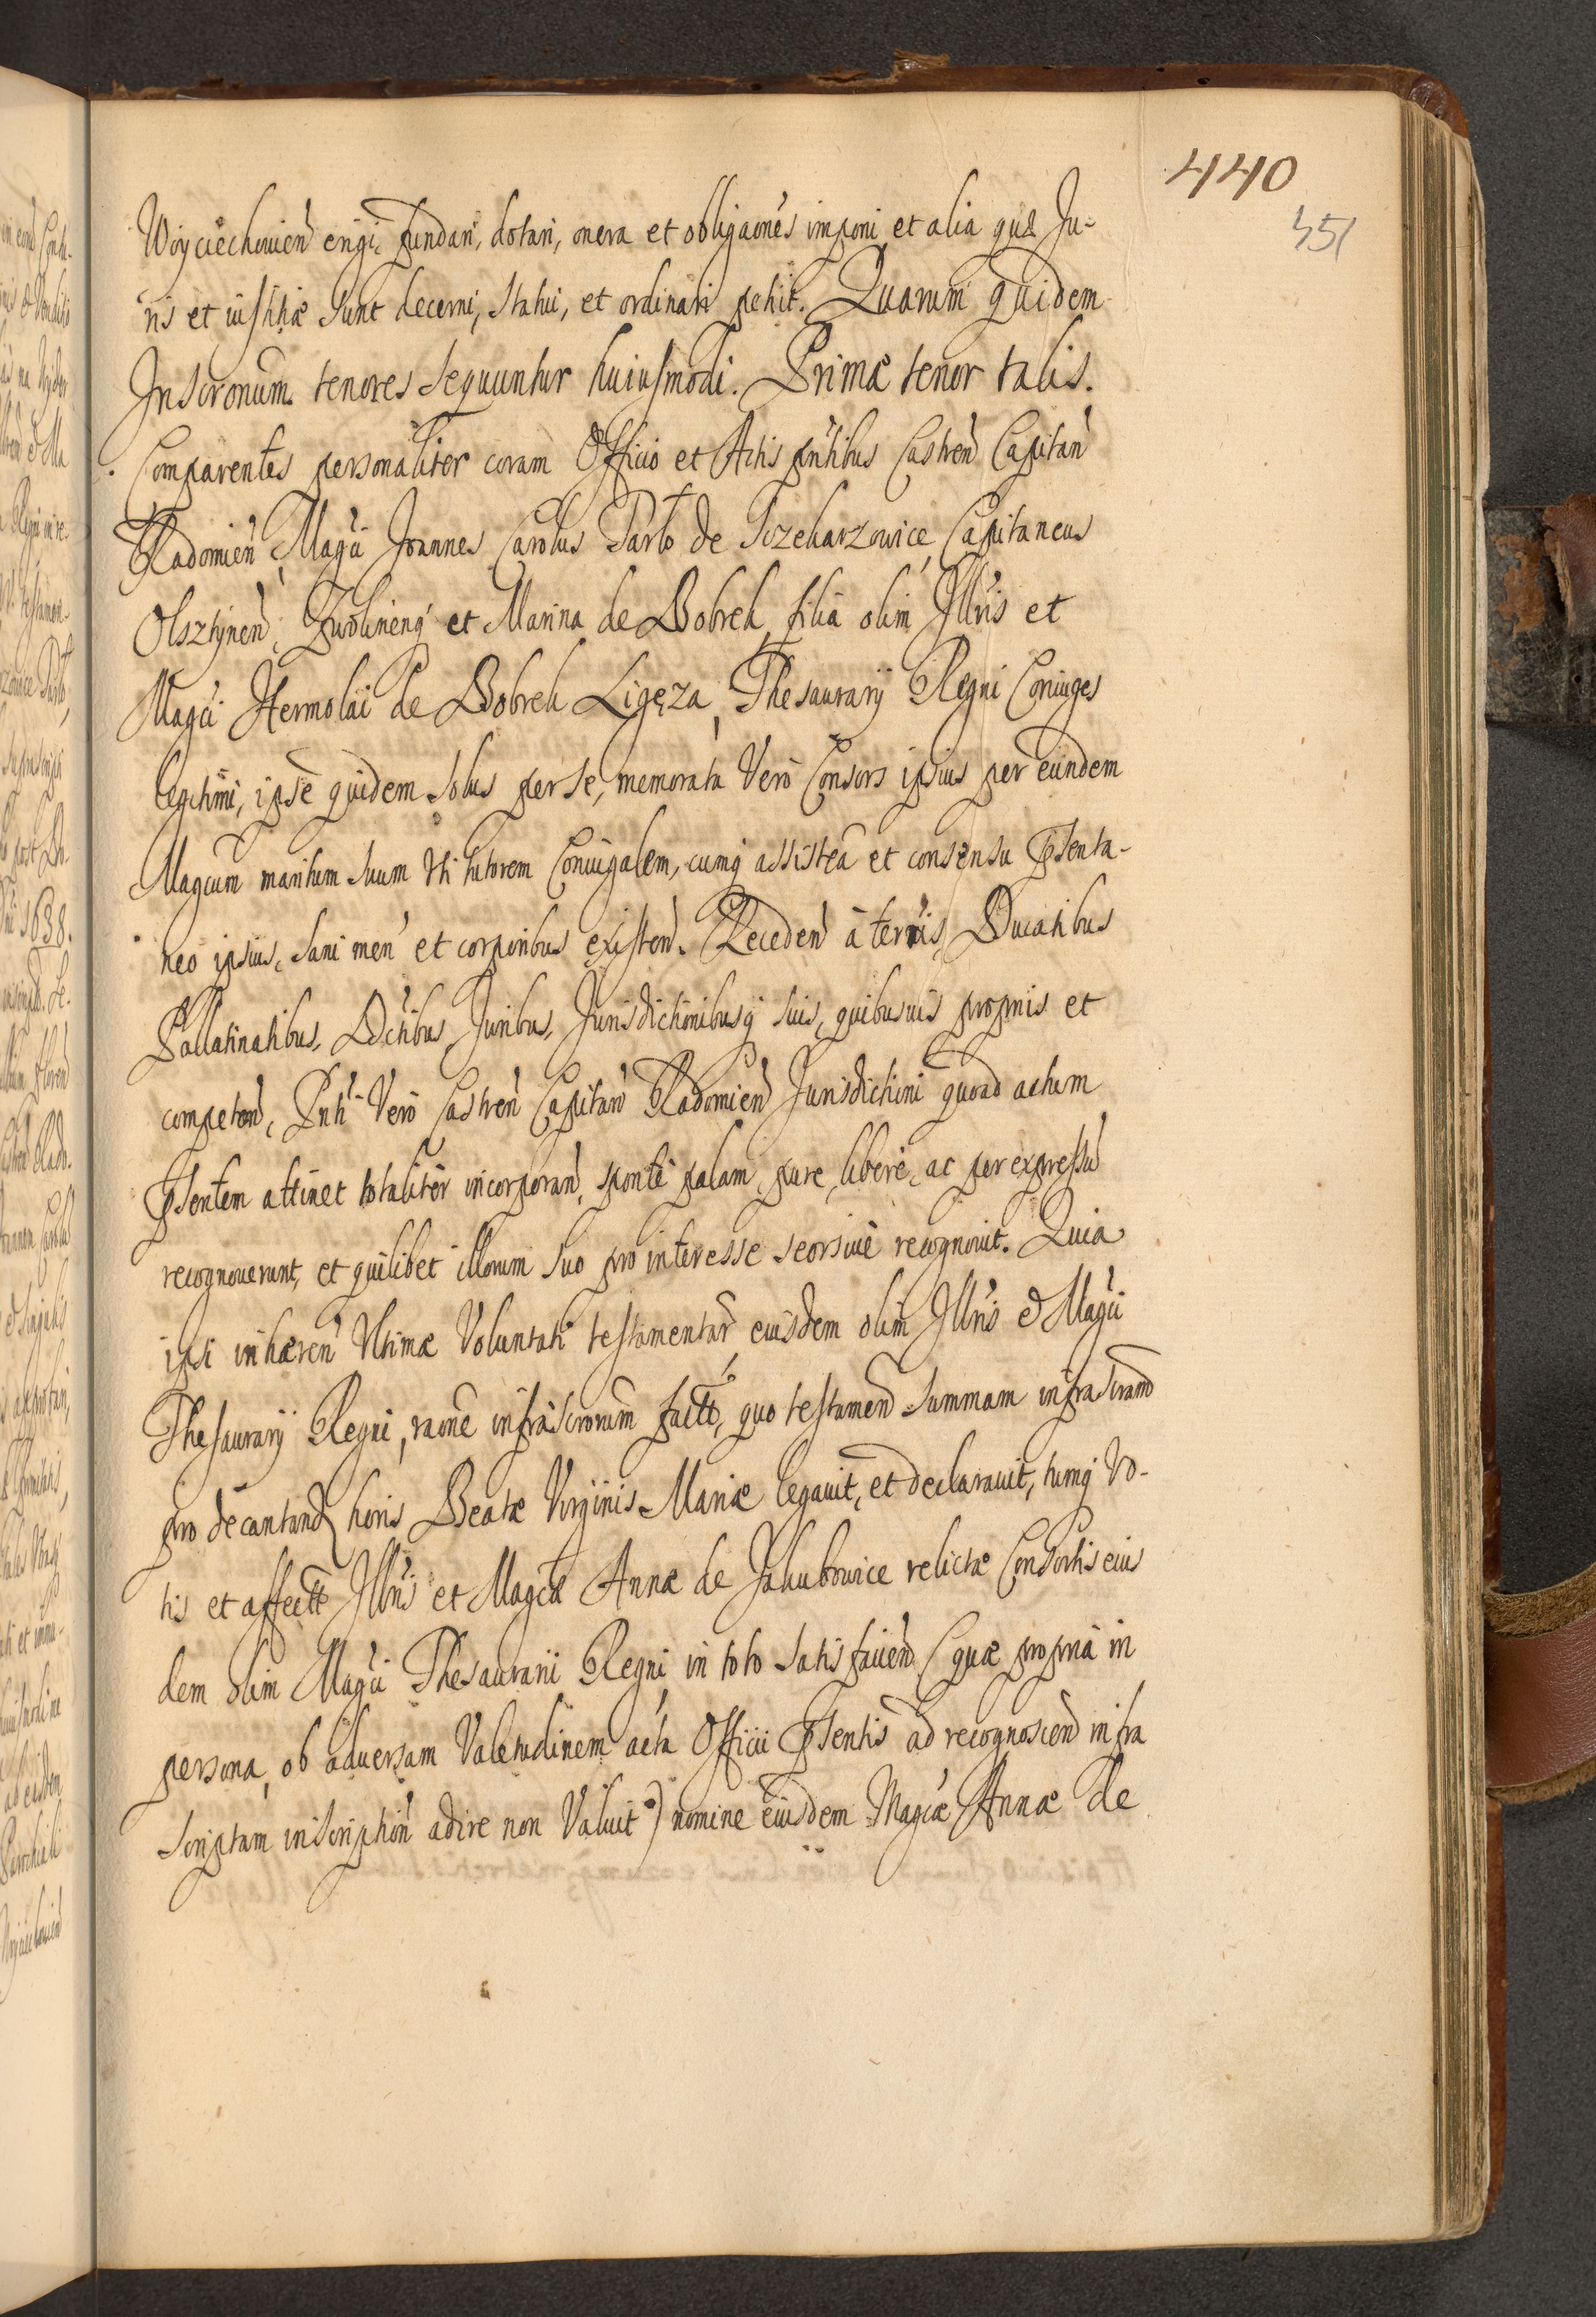 440
351
Woyciechouien̄ erigi, fundari, dotari, onera et obligaōnes imponi, et alia quæ Ju-
ris et iustitiæ sunt decerni, statui, et ordinari petiit. Quarum quidem
Inscrōnum tenores sequuntur huiusmodi. Primæ tenor talis.
Comparentes personaliter coram Officio et Actis pn̄tibus Castren̄ Capitan̄
Radomien̄ Magci Joannes Carolus Tarło de Sczekarzowice, Capitaneus
Olsztynen̄, Zwolinenq́ et Marina de Bobrek, filia olim Jllris et
Magci Hermolai de Bobrek Ligęza, Thesaurarij Regni Coniuges
legitimi, ipse quidem solus per se, memorata Vero Consors ipsius per eundem
Magcum maritum suum Vti tutorem Coniugalem, cumq́ assistēa et consensu Pſenta-
neo ipsius, sani men̄ et corporibus existen̄. Receden̄ à terris, Ducatibus
Pallatinatibus, Dc̄tibus, Juribus, Jurisdictionibusq́ suis, quibusuis proprijs et
competen̄, Pn̄ti Vero Castren̄ Capitan̄ Radomien̄ Jurisdictini quoad actum
Pſentem attinet totaliter incorporan̄, sponte palam, pure, libere, ac per expressū
recognouerunt, et quilibet illorum suo pro interesse seorsiue recognouit. Quia
ipsi inhæren̄ Vltimæ Voluntati testamentar̄, eiusdem olim Jllris et Magci
Thesaurarij Regni, raōne infrascrorum factæ, quo testamen̄ summam infrascram̄
pro decantand̄ horis Beatæ Virginis Mariæ legauit, et declarauit, tumq́ Vo-
tis et affectt Jllris et Magcæ Annæ de Jakubowice relictæ Consortis eius
dem olim Magci Thesaurarii Regni in toto satisfacien̄ (quæ propria in
persona, ob aduersam Valetudinem acta Officii Pſentis ad recognoscen̄ infra
scriptam inscription̄ adire non Valuit) nomine eiusdem Magcæ Annæ de